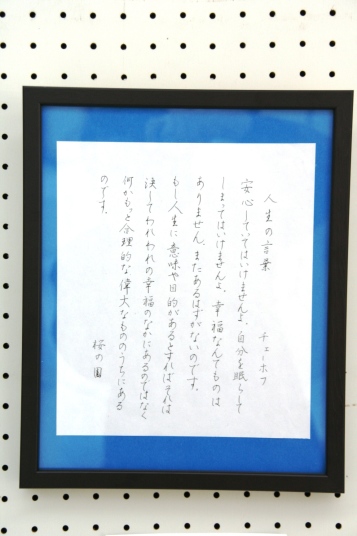 人生の言葉
チェーホフ
安心していてはいけませんよ、自分を眠らして
しまってはいけませんよ。幸福なんてものは
ありません。またあるはずがないのです。
もし人生に意味や目的があるとすればそれは
決してわれわれの幸福のなかにあるのではなく
何かもっと合理的な偉大なもののうちにある
のです。
桜の園